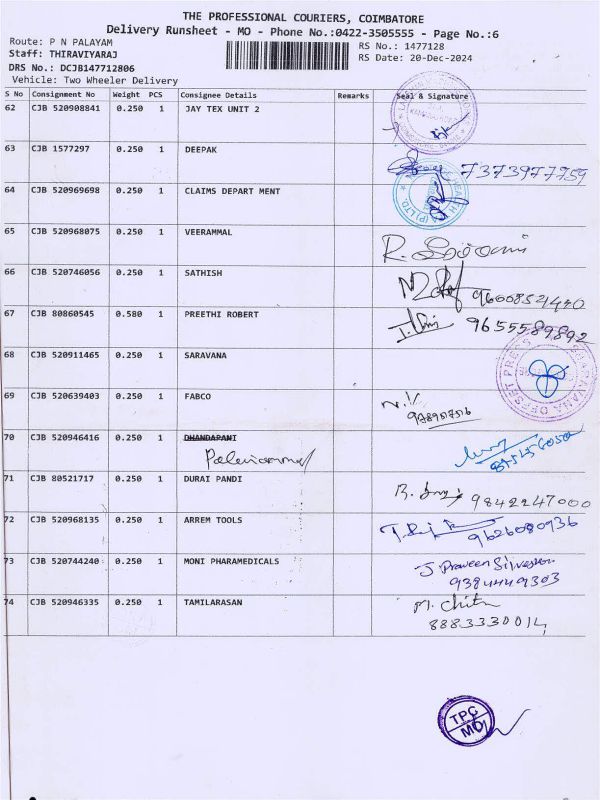 THE PROFESSIONAL COURIERS, COIMBATORE
Delivery Runsheet - MO - Phone No.:0422-3505555 - Page No.:6
Route: P N PALAYAM
RS No.: 1477128
Staff: THIRAVIYARAJ
RS Date: 20-Dec-2024
DRS No.: DCJB147712806
Vehicle: Two Wheeler Delivery
S No Consignment No Weight PCS Consignee Details Remarks Seal & Signature
62 CJB 520908841 0.250 1 JAY TEX UNIT 2
63 CJB 1577297 0.250 1 DEEPAK 7373977759
64 CJB 520969698 0.250 1 CLAIMS DEPART MENT
65 CJB 520968075 0.250 1 VEERAMMAL
66 CJB 520746056 0.250 1 SATHISH
67 CJB 80860545 0.580 1 PREETHI ROBERT 9655589892
68 CJB 520911465 0.250 1 SARAVANA OFFSET PRESS
69 CJB 520639403 0.250 1 FABCO
70 CJB 520946416 0.250 1 DHANDAPANI
Palaniammal
71 CJB 80521717 0.250 1 DURAI PANDI 9842247000
72 CJB 520968135 0.250 1 ARREM TOOLS 9626080936
73 CJB 520744240 0.250 1 MONI PHARAMEDICALS J. Praveen Silvester
9384449303
74 CJB 520946335 0.250 1 TAMILARASAN
8883330014
TPC
MDU